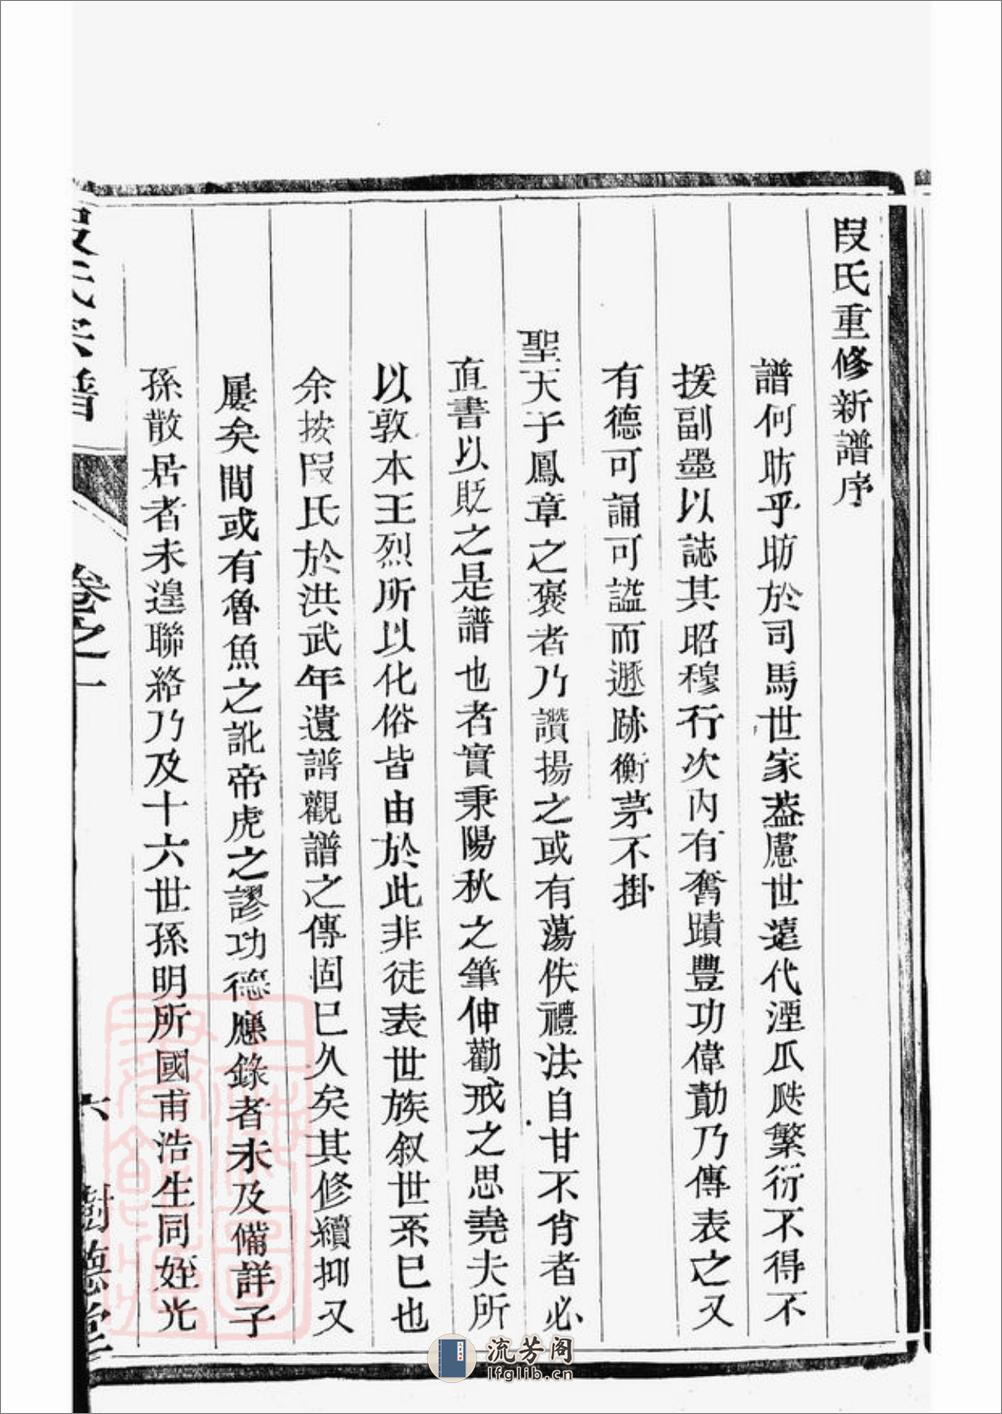 段氏重修新譜序
譜何昉乎昉於司馬世家蓋慮世遠代湮瓜瓞繁衍不得不
援副墨以誌其昭穆行次內有奮蹟豐功偉勣乃傳表之又
有德可誦可謚而遯跡衡茅不掛
聖天子鳳章之褒者乃讚揚之或有蕩佚禮法自甘不肖者必
直書以貶之是譜也者實秉陽秋之筆伸勸戒之思堯夫所
以敦本王烈所以化俗皆由於此非徒表世族叙世系已也
余按段氏於洪武年遺譜觀譜之傳固已久矣其修續抑又
屢矣間或有魯魚之訛帝虎之謬功德應錄者未及備詳子
孫散居者未遑聯絡乃及十六世孫明所國甫浩生同姪光
段氏宗譜
卷之一
六
樹德堂
流芳阁
lfglib.cn